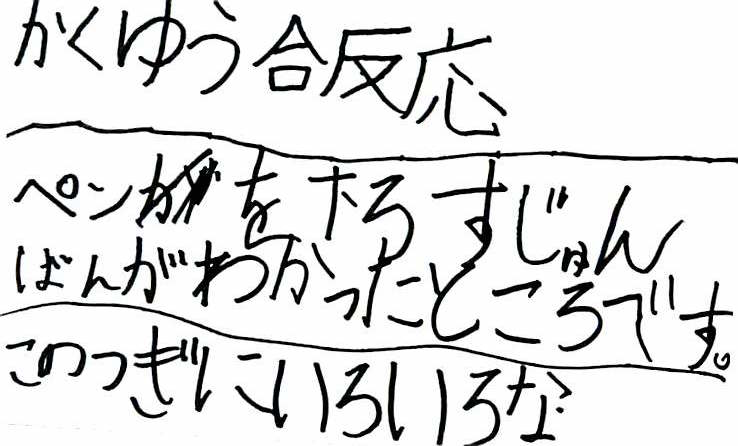 かくゆう合反応
ペンをトろすじゅん
ばんがわかったところです。
このつぎにいろいろな